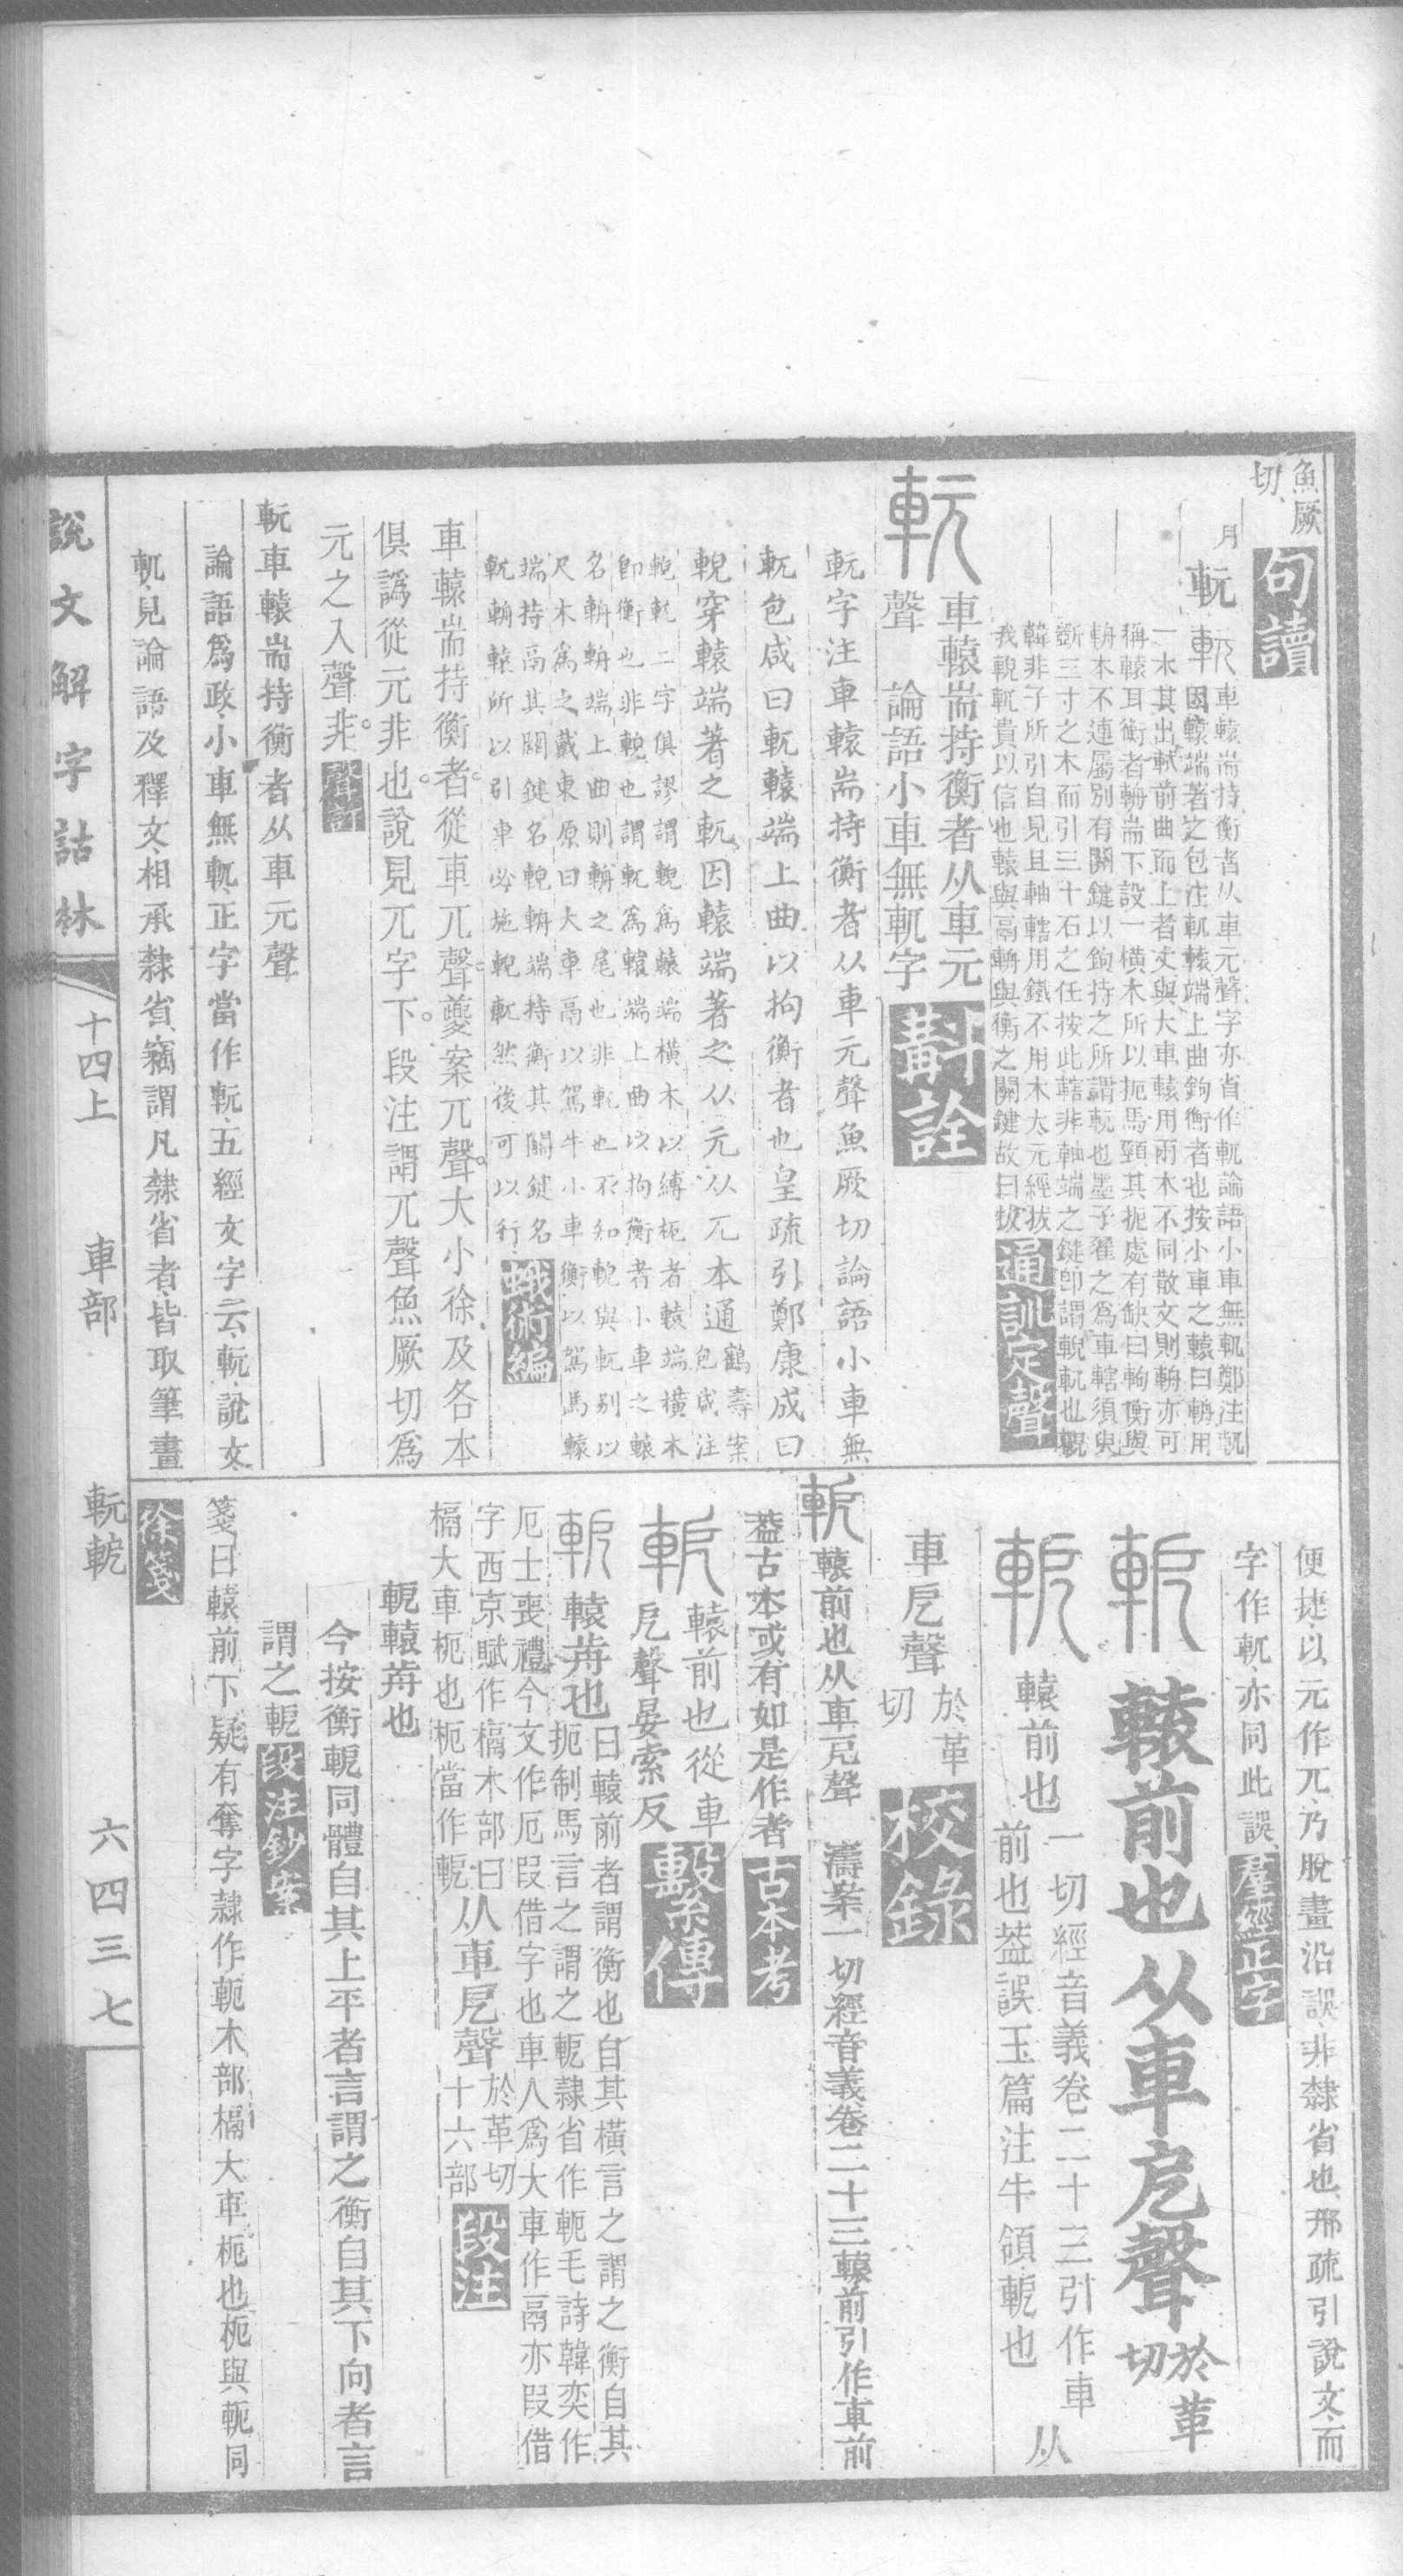 魚厥
切
句讀
月
軏
車轅耑持衡者从車元聲字亦省作軏論語小車無軏鄭注軏
因轅端著之包注軏轅端上曲鉤衡者也按小車之轅曰輈用
一木其出軾前曲而上者丈與大車轅用兩木不同散文則輈亦可
稱轅耳衡者輈耑下設一橫木所以扼馬頸其扼處有缺曰軥衡與
輈本不連屬別有關鍵以鉤持之所謂軏也墨子䨼之爲車轄須臾
斵三寸之木而引三十石之任按此轄非軸端之鍵卽謂輗軏也
韓非子所引自見且軸轄用鐵不用木太元經拔
我輗軏貴以信也轅與鬲輈與衡之關鍵故曰拔
通訓定聲
車轅耑持衡者从車元
聲 論語小車無軏字
斠詮
軏字注車轅耑持衡者从車元聲魚厥切論語小車無
軏包咸曰軏轅端上曲以拘衡者也皇疏引鄭康成曰
輗穿轅端著之軏因轅端著之从元从兀本通
鶴壽案
包咸注
輗軏二字俱謬謂輗爲轅端橫木以縛枙者轅端橫木
卽衡也非輗也謂軏爲轅端上曲以拘衡者小車之轅
名輈輈端上曲則輈之尾也非軏也不知輗與軏別以
尺木爲之戴東原曰大車鬲以駕牛小車衡以駕馬轅
端持鬲其關鍵名輗輈端持衡其關鍵名
軏輈轅所以引車必施輗軏然後可以行
蛾術編
車轅耑持衡者從車兀聲夔案兀聲大小徐及各本
俱譌從元非也說見兀字下段注謂兀聲魚厥切爲
元之入聲非
聲訂
軏車轅耑持衡者从車元聲
論語爲政小車無軏正字當作軏五經文字云軏說文
軏見論語及釋文相承隸省竊謂凡隸省者皆取筆畫
便捷以元作兀乃脫畫沿誤非隸省也邢疏引說文而
字作軏亦同此誤
羣經正字
轅前也从車戹聲
於革
切
轅前也
一切經音義卷二十三引作車
前也葢誤玉篇注牛領軶也
从
車戹聲
於革
切
校錄
轅前也从車戹聲 濤案一切經音義卷二十三轅前引作車前
葢古本或有如是作者
古本考
轅前也從車
戹聲晏索反
繫傳
轅歬也
曰轅前者謂衡也自其橫言之謂之衡自其
扼制馬言之謂之軶隸省作軛毛詩韓奕作
厄士喪禮今文作厄叚借字也車人爲大車作鬲亦叚借
字西京賦作槅木部曰
槅大車枙也枙當作軶
从車戹聲
於革切
十六部
段注
軶轅歬也
今按衡軶同體自其上平者言謂之衡自其下向者言
謂之軶
段注鈔案
箋曰轅前下疑有奪字隸作軛木部槅大車枙也枙與軛同
徐箋
說文解字詁林
十四上
車部
軏軶
六四三七